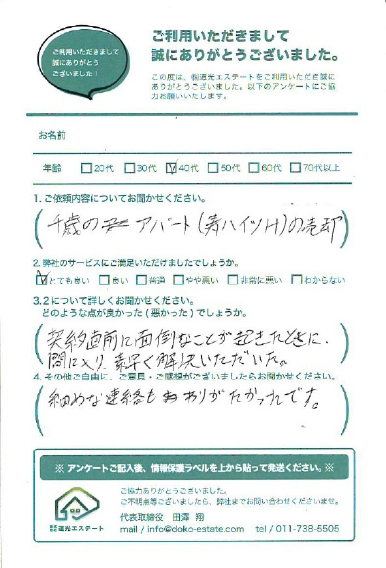 ご利用いただきまして
誠にありがとう
ございました！
ご利用いただきまして
誠にありがとうございました。
この度は、㈱道光エステートをご利用いただき誠に
ありがとうございました。以下のアンケートにご協
力お願いいたします。
お名前
年齢 □20代 □30代 ☑40代 □50代 □60代 □70代以上
1.ご依頼内容についてお聞かせください。
千歳の アパート(寿ハイツH)の売却
2.弊社のサービスにご満足いただけましたでしょうか。
☑とても良い □良い □普通 □やや悪い □非常に悪い □わからない
3.2について詳しくお聞かせください。
どのような点が良かった(悪かった)でしょうか。
契約直前に面倒なことが起きたときに、
間に入り、素早く解決いただいた。
4.その他ご自由に、ご意見・ご感想がございましたらお聞かせください。
細めな連絡も ありがたかったです。
※ アンケートご記入後、情報保護ラベルを上から貼って発送ください。※
ご協力ありがとうございました。
ご不明点等ございましたら、弊社までお問い合わせくださいませ。
株式会社道光エステート
代表取締役 田澤 翔
mail / info@doko-estate.com tel / 011-738-5505